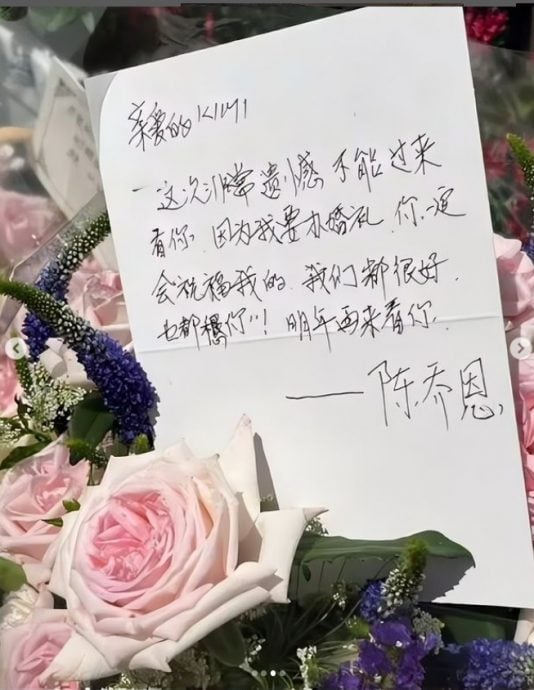 亲爱的Kimi
这次非常遗憾 不能过来
看你. 因为我要办婚礼. 你一定
会祝福我的. 我们都很好.
也都想你!! 明年再来看你.
——陈乔恩